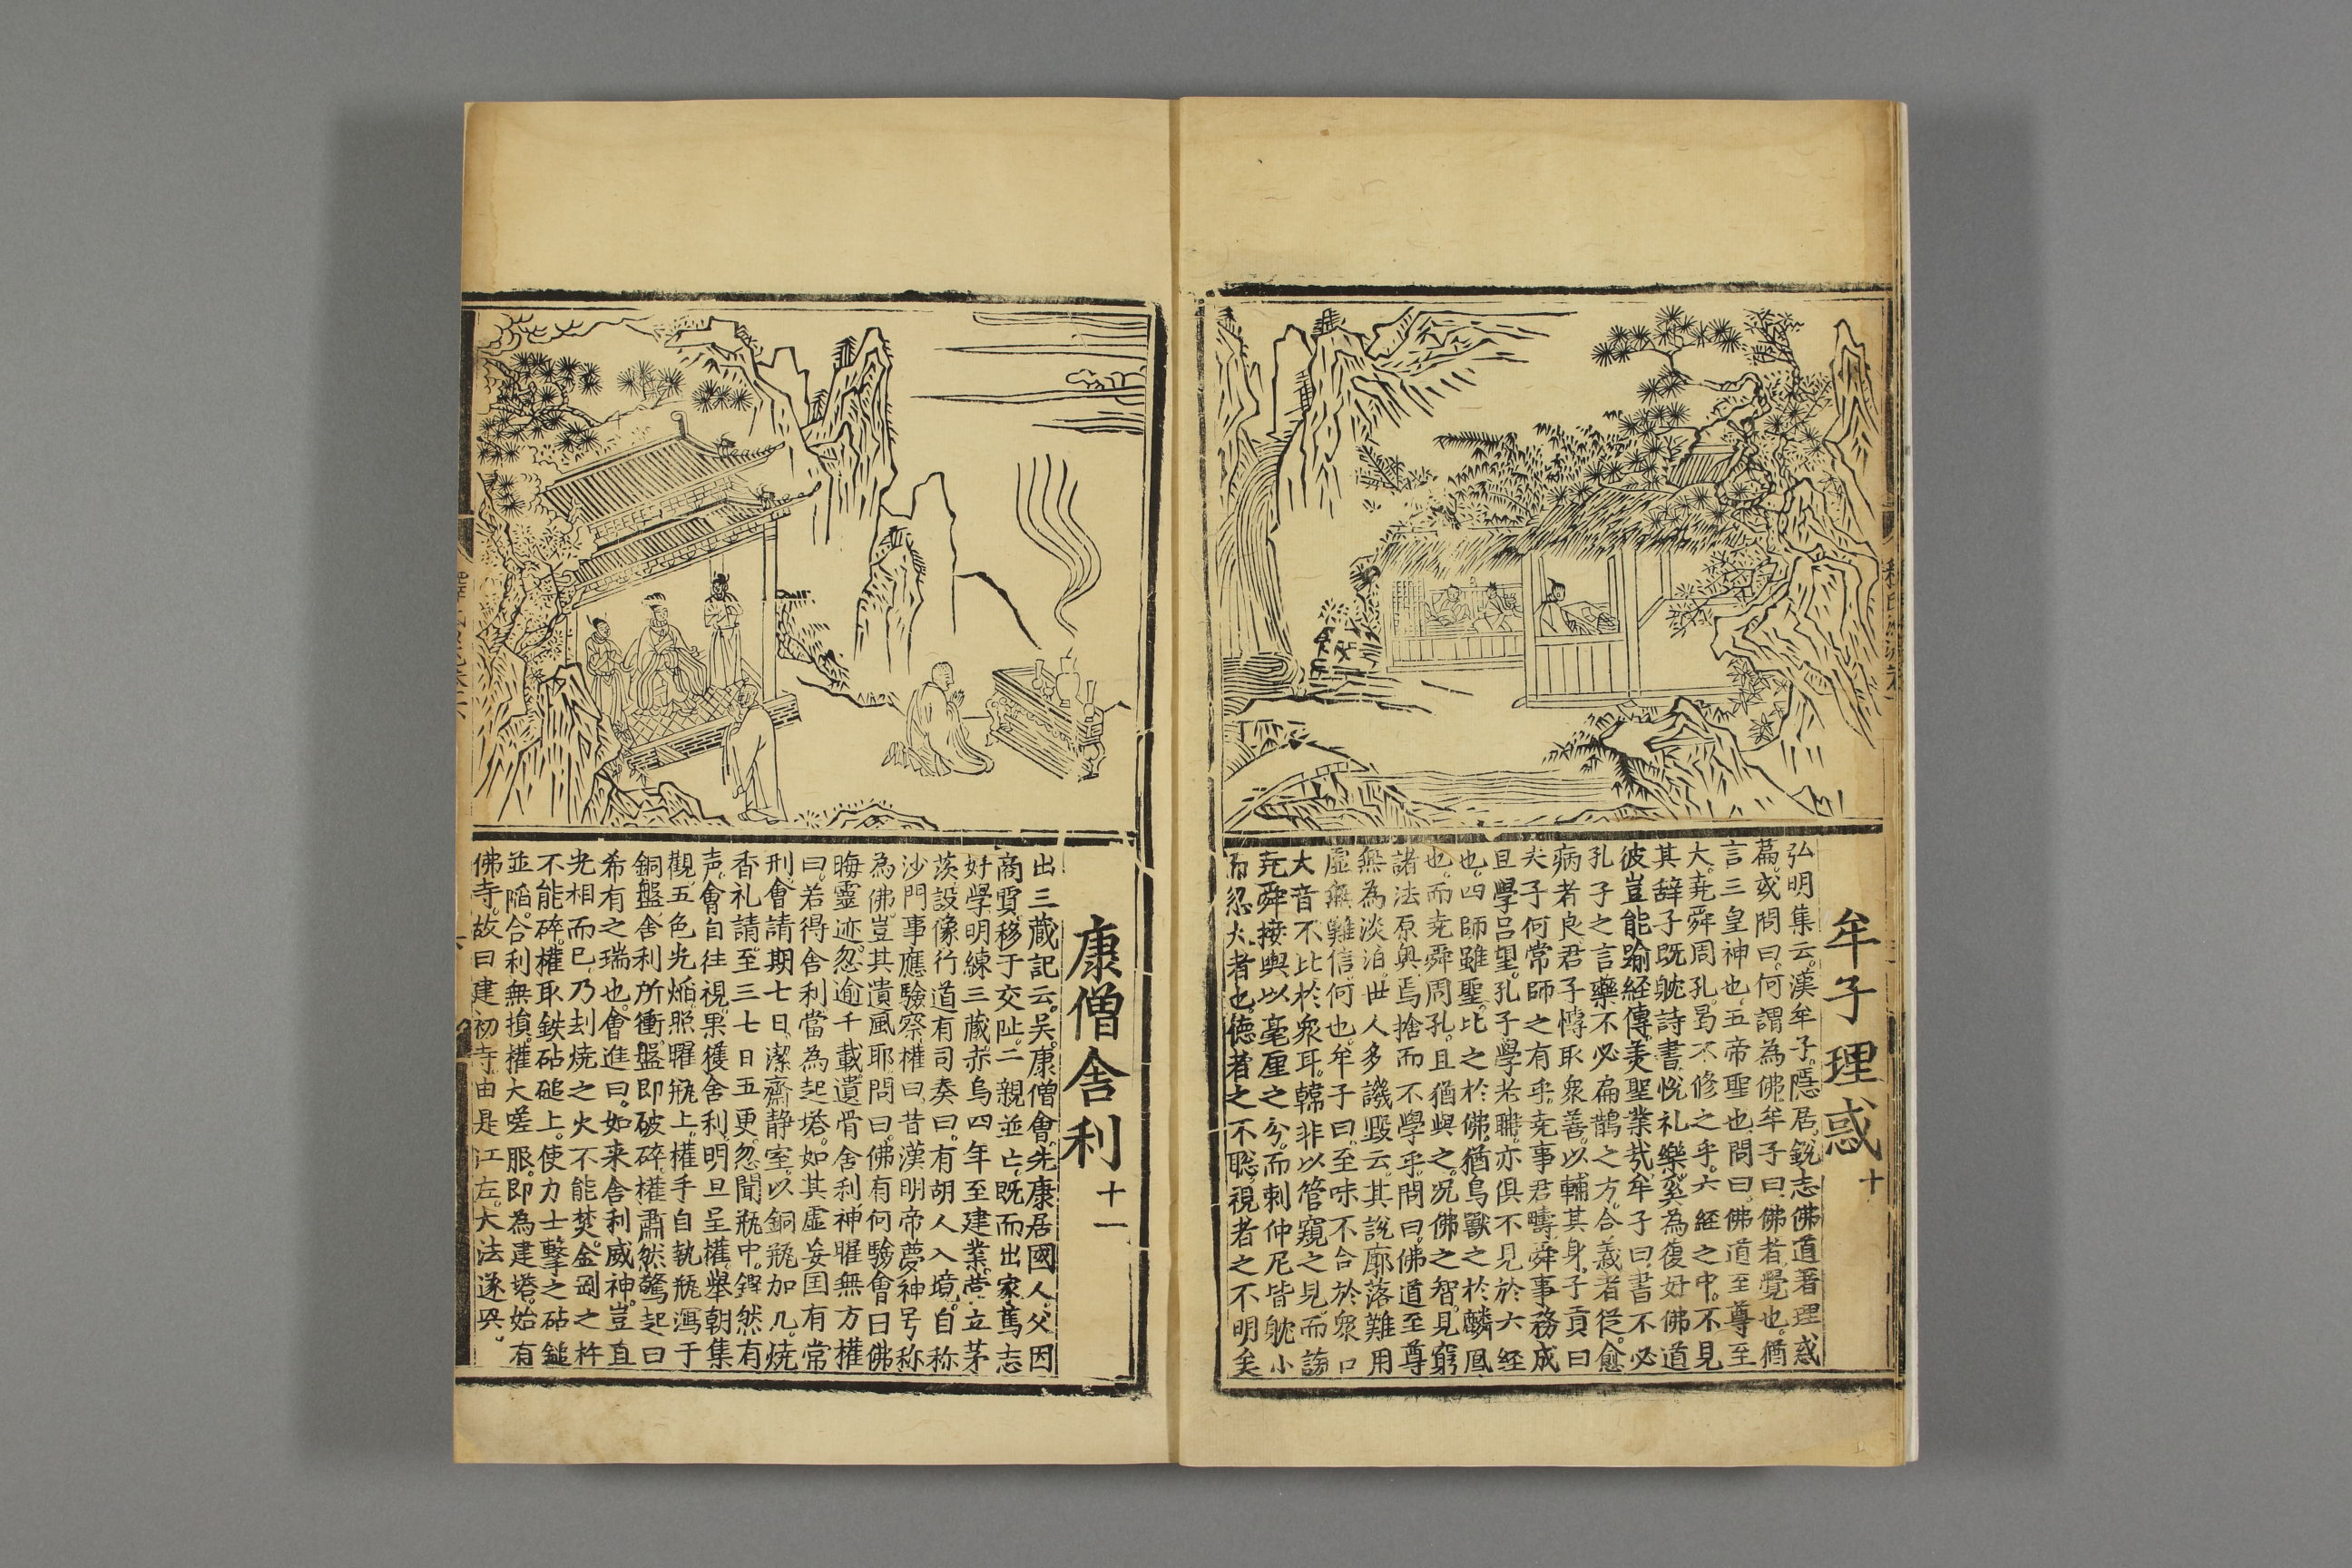 牟子理惑 十
弘明集云。漢牟子。隱居。銳志佛道。著理惑
篇。或問曰。何謂為佛。牟子曰。佛者覺也。猶
言三皇神也。五帝聖也。問曰。佛道至尊至
大。堯舜周孔。曷不修之乎。六經之中。不見
其辞。子既躭詩書。悅礼樂。奚為復好佛道
彼豈能踰經傳。美聖業㢤。牟子曰。書不必
孔子之言。藥不必扁鵲之方。合義者從。愈
病者良。君子愽取衆善。以輔其身。子貢曰
夫子何常師之有乎。堯事君疇。舜事務成
旦學呂望。孔子學老聃。亦俱不見於六經
也。四師雖聖。比之於佛。猶鳥獸之於麟鳳
也。而堯舜周孔。且猶與之。况佛之智。見窮
諸法原奧。焉捨而不學乎。問曰。佛道至尊
無為淡泊。世人多譏毀云。其說廓落難用
虛無難信。何也。牟子曰。至味不合於衆口
大音不比於衆耳。韓非以管窺之見。而謗
堯舜。接輿以毫厘之分。而刺仲尼。皆躭小
而忽大者也。德者之不聡。視者之不明矣
康僧舍利 十一
出三藏記云。吴康僧會。先康居國人。父因
商賈。移于交阯。二親並亡。既而出家。篤志
好學。明練三藏。赤烏四年至建業。营立茅
茨。設像行道。有司奏曰。有胡人入境。自称
沙門。事應驗察。權曰。昔漢明帝夢神号称
為佛。豈其遺風耶。問曰。佛有何驗。會曰。佛
晦靈迹。忽逾千載。遺骨舍利。神曜無方。權
曰。若得舍利。當為起塔。如其虛妄。国有常
刑。會請期七日。潔齋静室。以銅瓶加几。燒
香礼請。至三七日五更。忽聞瓶中。鏗然有
声。會自往視。果獲舍利。明旦呈權。舉朝集
觀。五色光焰。照曜瓶上。權手自執瓶瀉于
銅盤。舍利所衝。盤即破碎。權肅然驚起曰
希有之瑞也。會進曰。如来舍利威神。豈直
光相而已。乃刧燒之火不能焚。金剛之杵
不能碎。權取鉄砧磓上。使力士擊之。砧鎚
並陷。舍利無損。權大嗟服。即為建塔。始有
佛寺。故曰建初寺。由是江左。大法遂興。